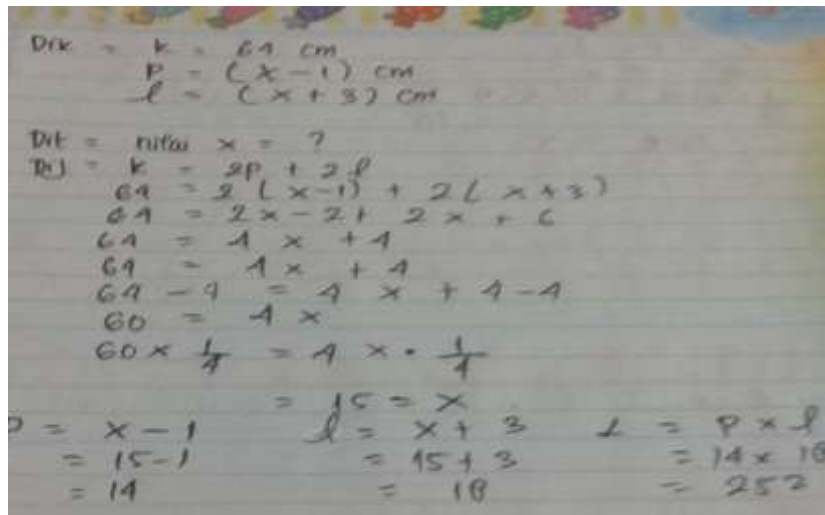 Dik = k = 64 cm
p = (x - 1) cm
l = (x + 3) cm
Dit = nilai x = ?
Dij = k = 2p + 2l
64 = 2 (x-1) + 2 (x+3)
64 = 2x - 2 + 2x + 6
64 = 4x + 4
64 = 4x + 4
64 - 4 = 4x + 4 - 4
60 = 4x
60 × 1/4 = 4x • 1/4
= 15 = x
p = x - 1 l = x + 3 L = p × l
= 15 - 1 = 15 + 3 = 14 × 18
= 14 = 18 = 252